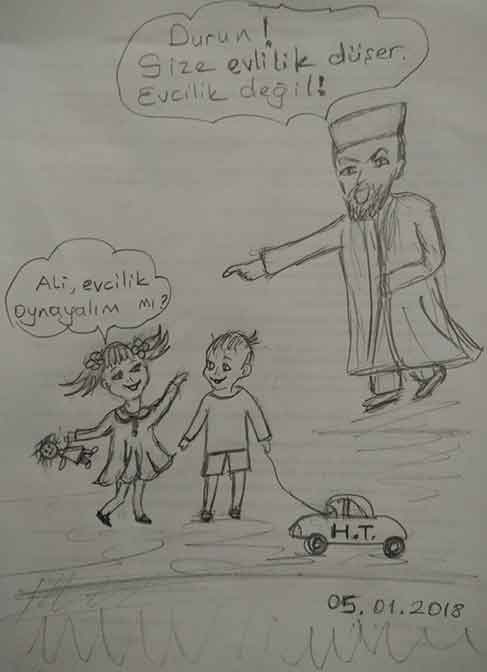 Durun!
Size evlilik düşer.
Evcilik değil!
Ali, evcilik
oynayalım mı?
H.T.
05.01.2018